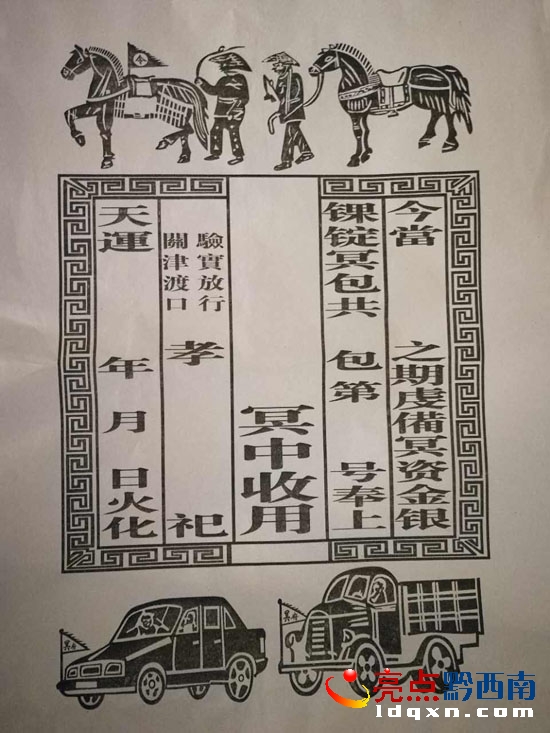 令
今當 之期虔備冥资金银
锞锭冥包共 包第 号奉上
冥中收用
驗實放行
關津渡口
孝 祀
天運 年 月 日火化
亮点黔西南
ldqxn.com